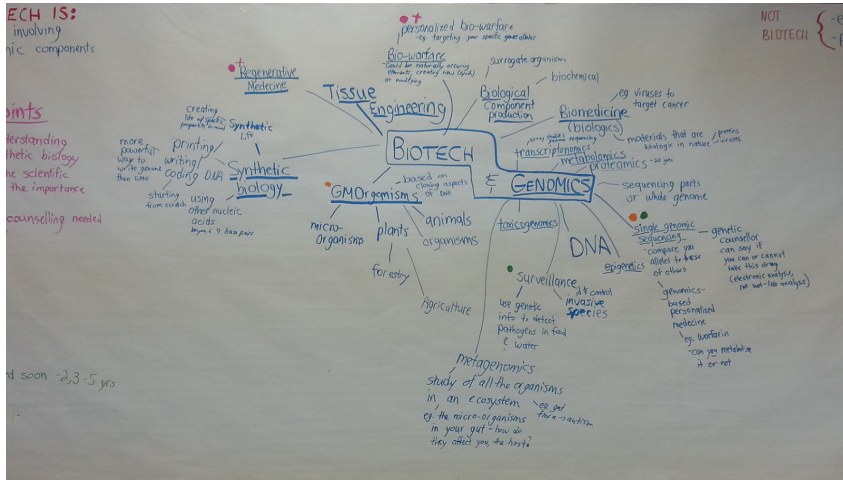 ECH IS:
involving
ic components
oints
derstanding
thetic biology
he scientific
the importance
counselling needed
d soon -2,3-5 yrs
NOT
BIOTECH
personalized bio-warfare
-eg. targeting your specific genes/alleles
Bio-warfare
-could be naturally occuring
elements, creating new (synbio)
or modifying
Regenerative
Medecine
Tissue
Engineering
surrogate organism
biochemical
Biological
component
production
Biomedicine
(biologics)
eg viruses to
target cancer
materials that are
biologic in nature
proteins
viruses
BIOTECH
&
GENOMICS
transcriptonomics
metabolomics
proteomics
sequencing parts
or whole genome
creating
Synthetic
Life
Synthetic
biology
printing
writing
coding DNA
more
powerful
way to
write genome
then GMO
starting
from scratch
using
other nucleic
acids
beyond 4 base pairs
GMOrganisms
-based on
cloning aspects
of DNA
micro-
organisms
plants
forestry
animals
organisms
Agriculture
toxicogenomics
DNA
epigenetics
single genomic
sequencing
-compare you
alleles to those
of others
genetic
counsellor
can say if
you can or cannot
take this drug
(electronic analysis,
not wet-lab analysis)
genomics-
based
personalised
medecine
eg. Warfarin
-can you metabolise
it or not
surveillance
use genetic
info to detect
pathogens in food
&
water
id + control
invasive
species
metagenomics
study of all the organisms
in an ecosystem
eg. the micro-organisms
in your gut - how do
they affect you, the host?
eg gut
flora -> autism